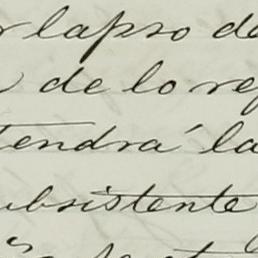 r lapso de
de lo re
tendrá la
ubsistente